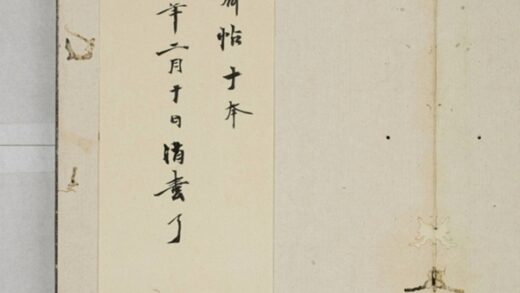 帖十本
年二月十日清書了